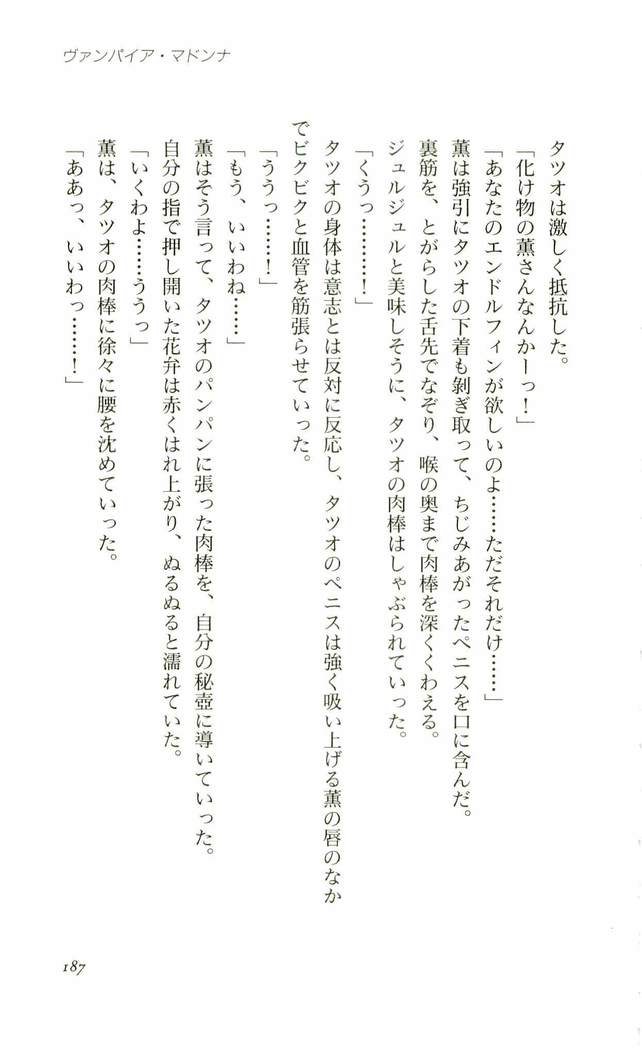 ヴァンパイア・マドンナ
タツオは激しく抵抗した。
「化け物の薫さんなんかーっ！」
「あなたのエンドルフィンが欲しいのよ……ただそれだけ……」
薫は強引にタツオの下着も剝ぎ取って、ちじみあがったペニスを口に含んだ。
裏筋を、とがらした舌先でなぞり、喉の奥まで肉棒を深くくわえる。
ジュルジュルと美味しそうに、タツオの肉棒はしゃぶられていった。
「くうっ………！」
タツオの身体は意志とは反対に反応し、タツオのペニスは強く吸い上げる薫の唇のなか
でビクビクと血管を筋張らせていった。
「ううっ……！」
「もう、いいわね……」
薫はそう言って、タツオのパンパンに張った肉棒を、自分の秘壺に導いていった。
自分の指で押し開いた花弁は赤くはれ上がり、ぬるぬると濡れていた。
「いくわよ……ううっ」
薫は、タツオの肉棒に徐々に腰を沈めていった。
「ああっ、いいわっ……！」
187